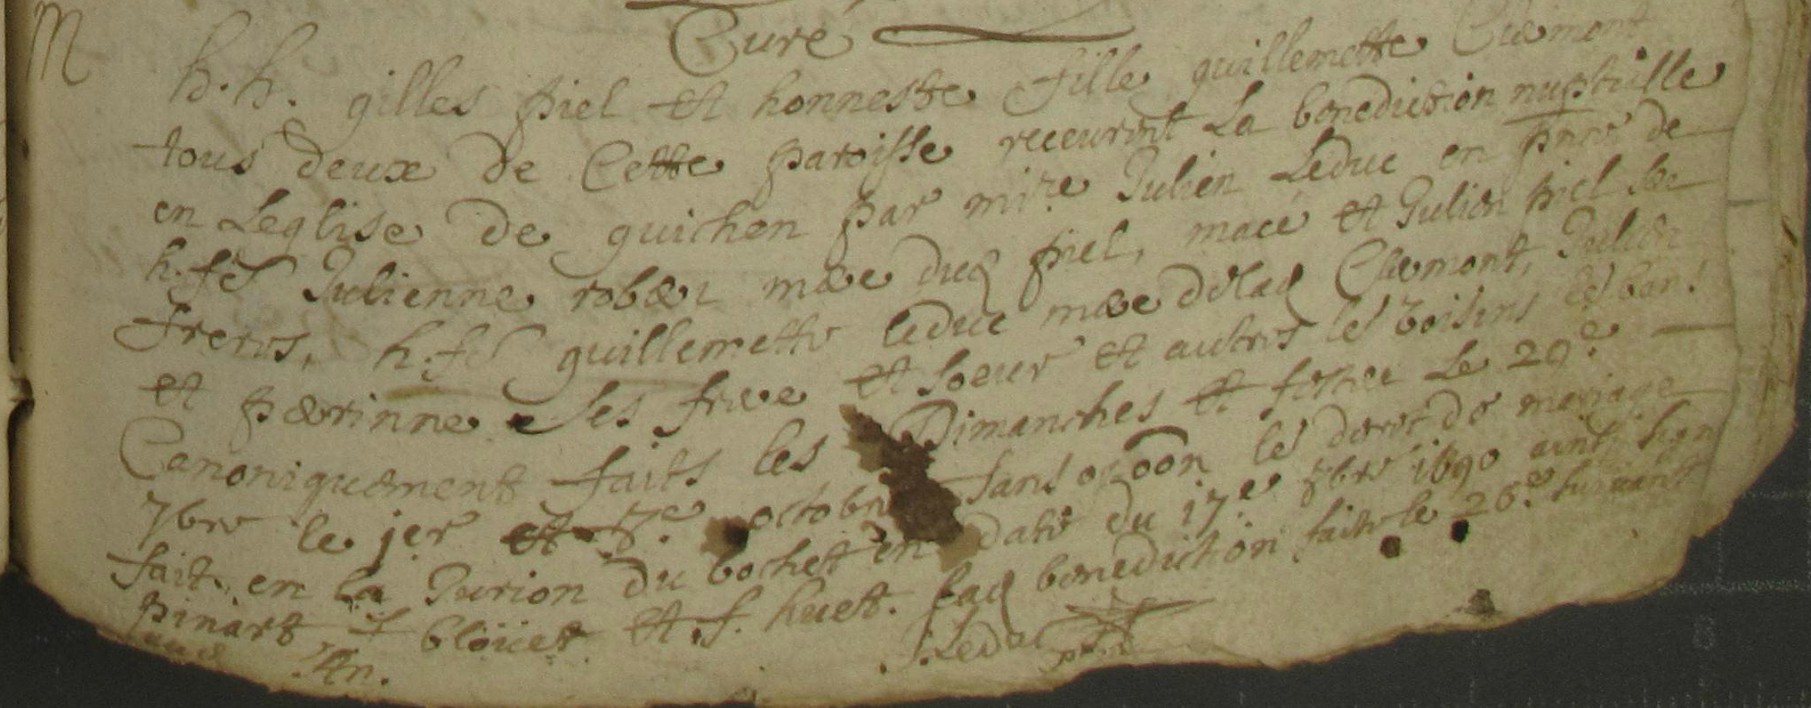 Curé
M
h.h. gilles piel et honneste fille guillemette Clemont
tous deux de Cette paroisse receuront La benediction nuptialle
en Leglise de guichen par mire Julien Leduc en pnce de
h. fe Julienne rober mere dud piel, macé et Julien piel ses
freres, h. fe guillemette leduc mere de lad Clemont, Julien
et perrinne ses frere et soeur et autres les voisins les bans
Canoniquement faits les Dimanches et feste Le 29e
7bre le jer et 8e octobre sans opoon le de mariage
fait en la Jurion du bochet en date du 17e 7bre 1690 ainsi sign
pinart f blouet et f. huet. lad benediction faitte le 26e suivant
J Leduc ptre